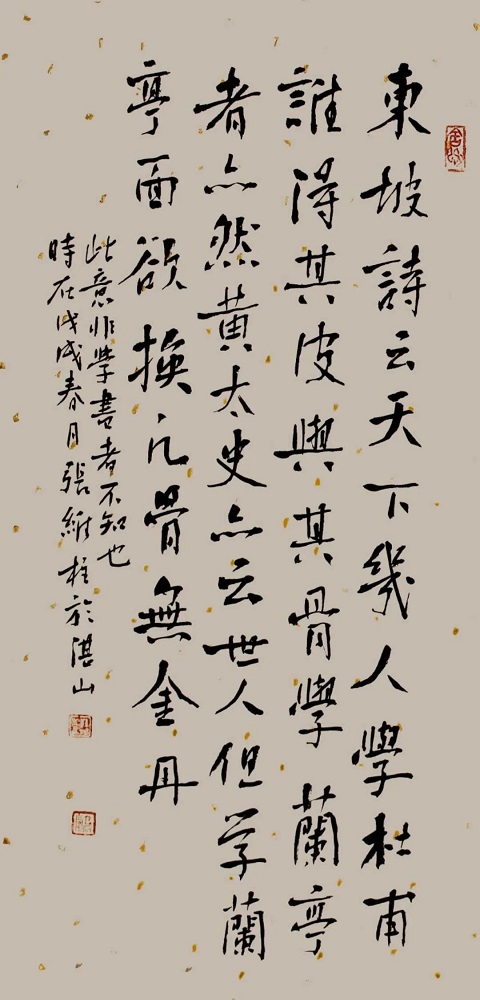 東坡詩云天下幾人學杜甫
誰得其皮與其骨學蘭亭
者亦然黄太史亦云世人但学蘭
亭面欲換凡骨無金丹
此意非學書者不知也
時在戊戌春月張維柱於湛山